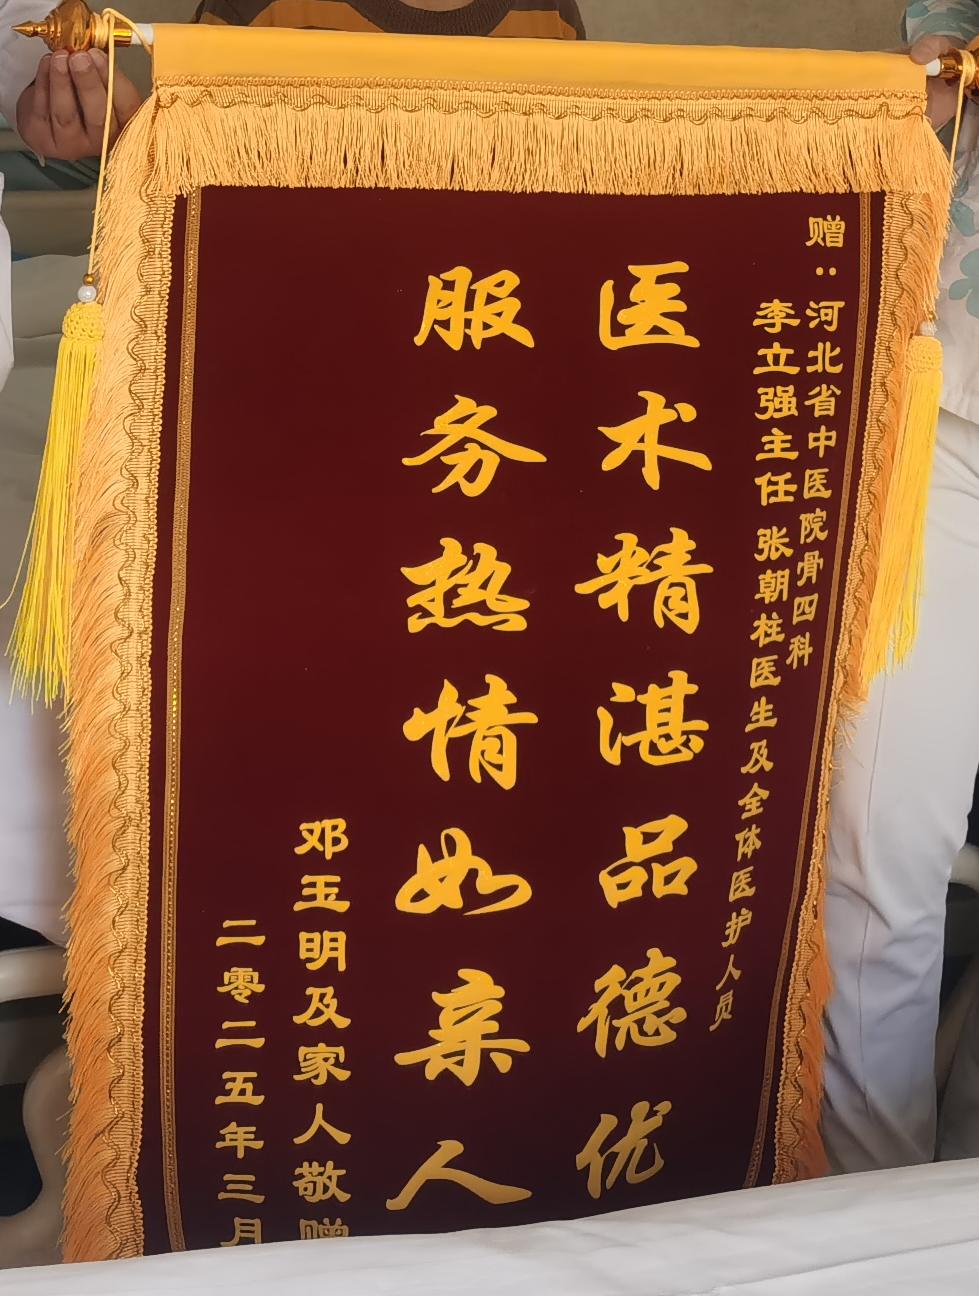 赠：河北省中医院骨四科
李立强主任 张朝柱医生及全体医护人员
医术精湛品德优
服务热情如亲人
邓玉明及家人敬赠
二零二五年三月